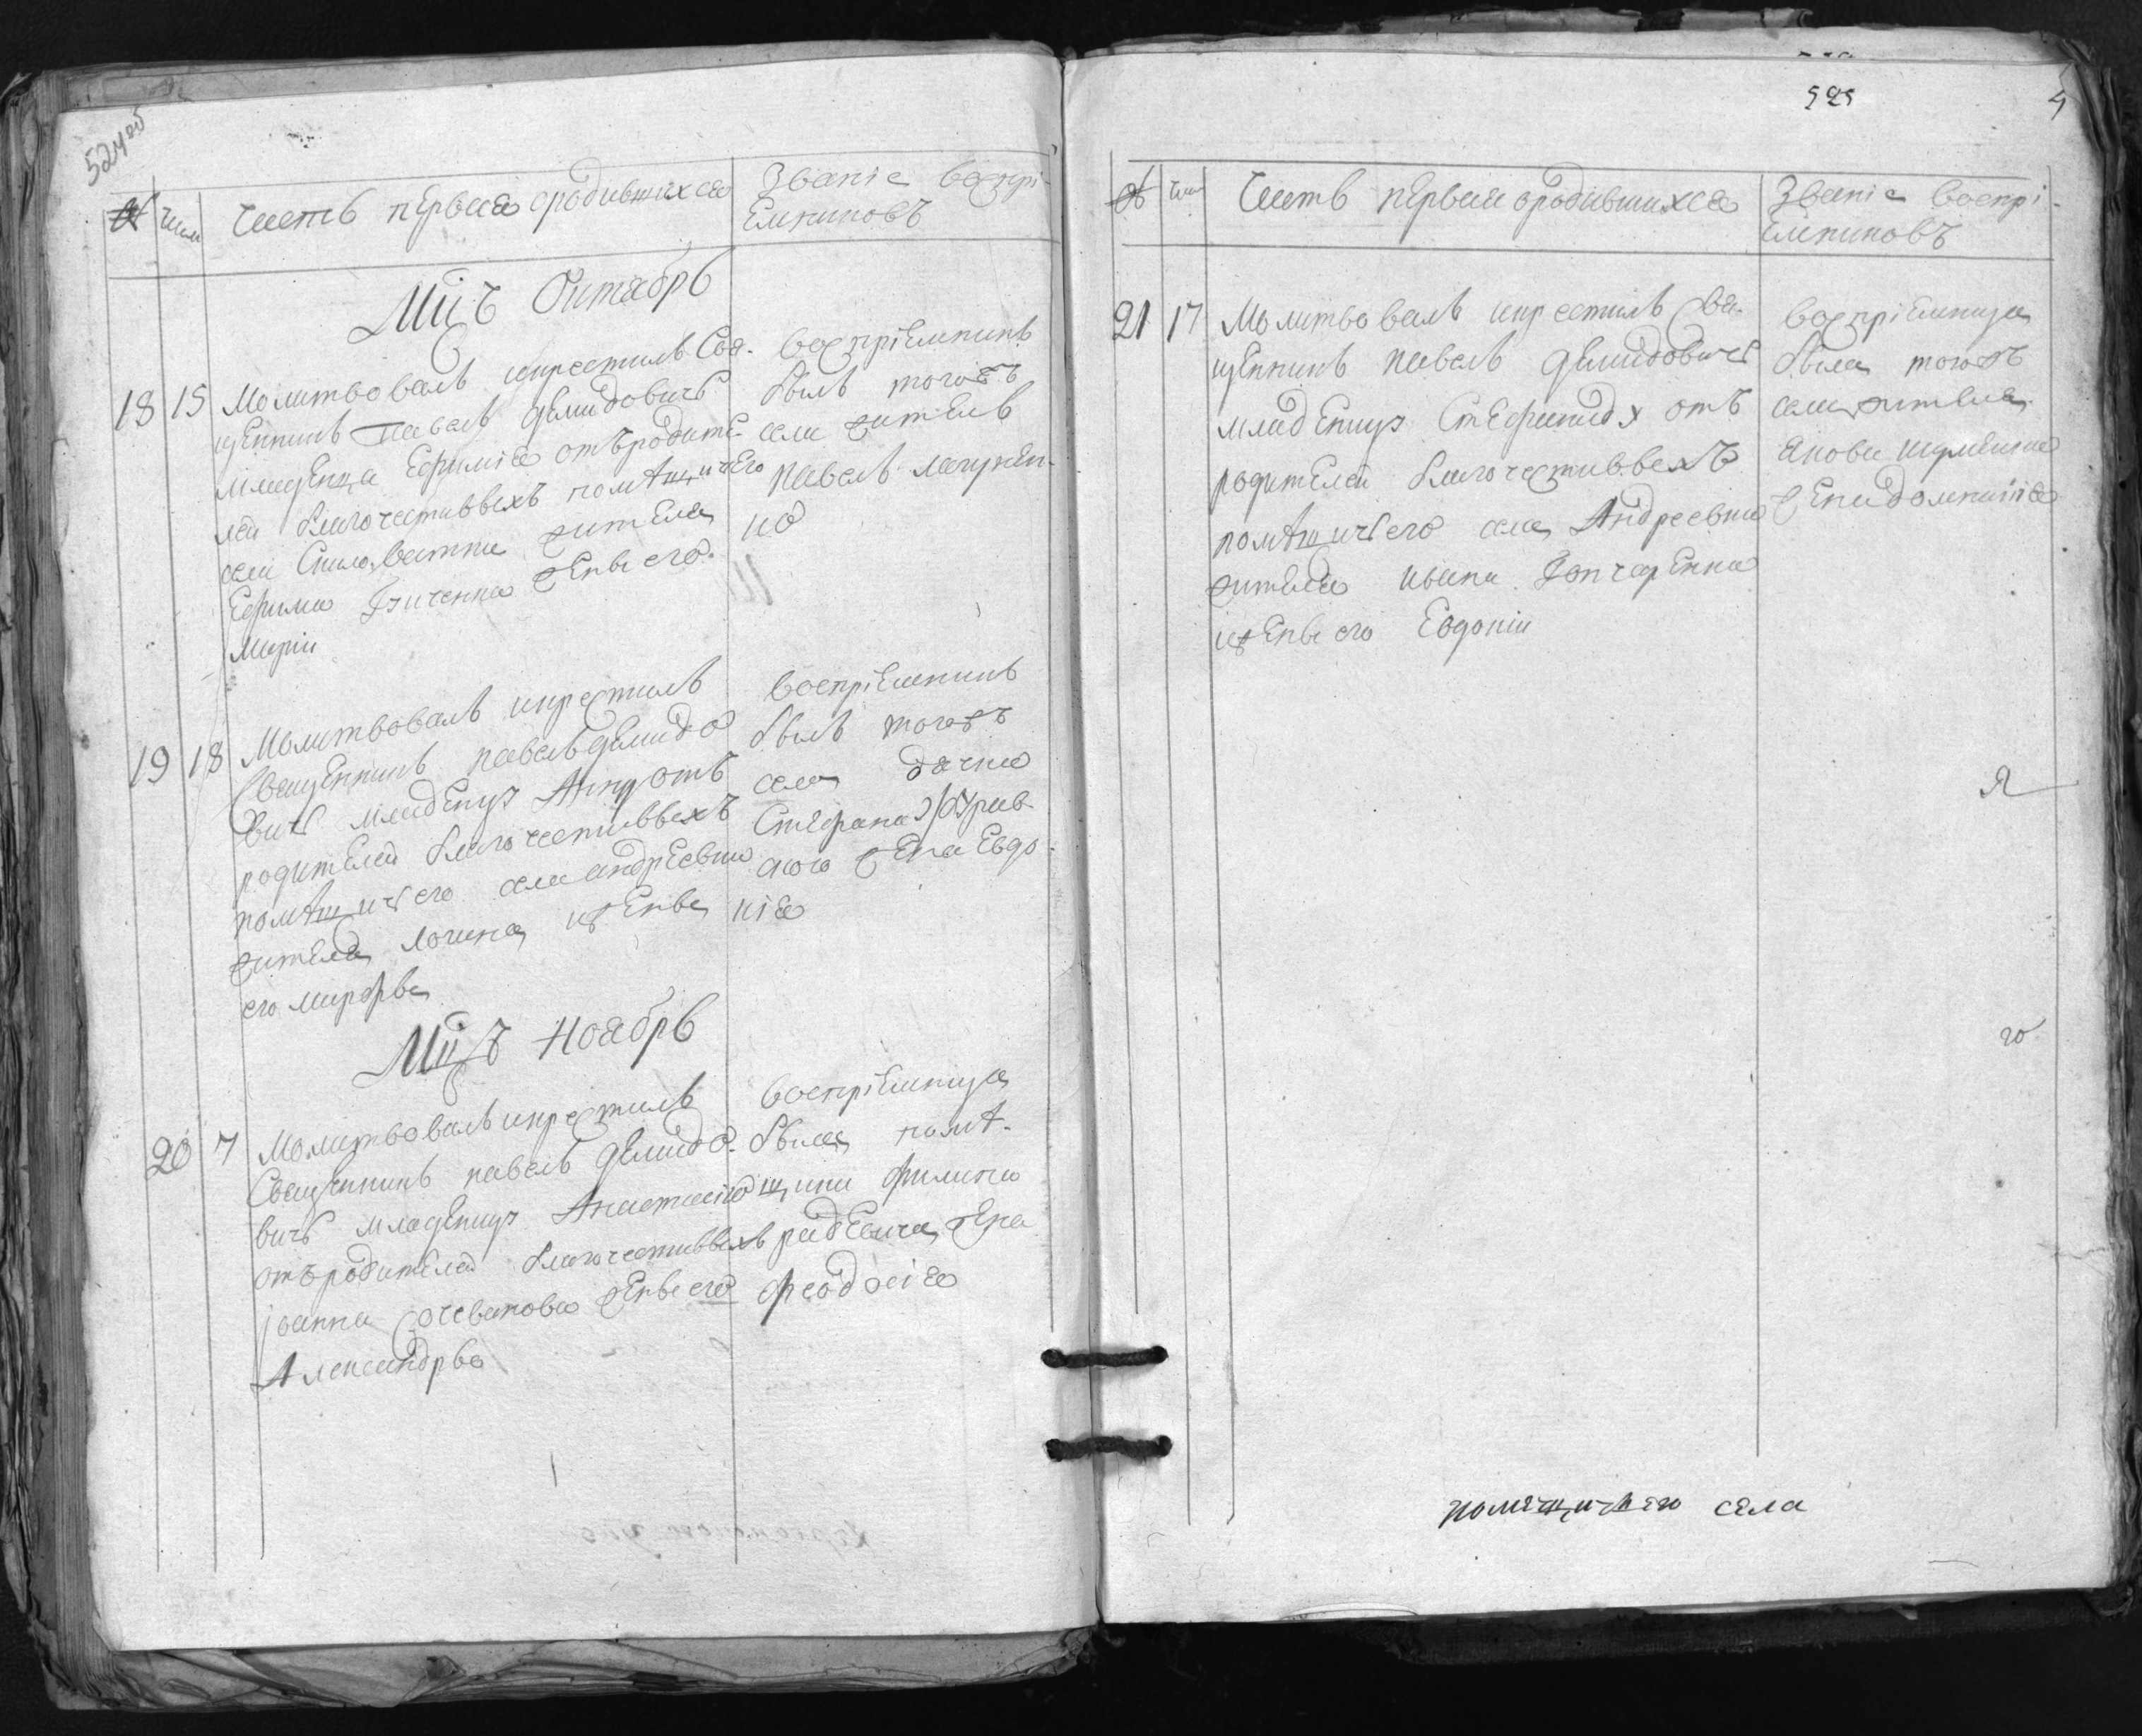 524 об
№ Числ Часть первая о родившихся Званіе воспрі-
емниковъ
Мцъ Октябрь
18 15 Молитвовалъ и крестилъ Свя-
щенникъ Павелъ Демидовичъ
младенца Ефимія отъ родите-
лей благочестивыхъ помѣщичего
села жителя
Ефима жены его
Маріи
воспріемникъ
былъ тогожъ
села житель
Павелъ
ко
19 18 Молитвовалъ и крестилъ
Священникъ Павелъ Демидо
вичъ младенцу Анну отъ
родителей благочестивыхъ
помѣщичьего села Андреевки
жителя Логина и жены
его Марфы
воспріемникъ
былъ тогожъ
села дячка
Стефана
ского жена Евдо-
кія
Мцъ Ноябрь
20 7 Молитвовалъ и крестилъ
Священникъ Павелъ Демидо-
вичъ младенцу Анастасію
отъ родителей благочестивыхъ
Іоанна Сочеванова жены его
Александры
воспріемница
была помѣ-
щика Филипа
жена
Феодосія
525
№ Числ Часть первая о родившихся Званіе воспрі-
емниковъ
21 17 Молитвовалъ и крестилъ Свя-
щенникъ Павелъ Демидовичъ
младенцу Стефаниду отъ
родителей благочестивыхъ
помѣщичьего села Андреевки
жителя Ивана Гончаренка
и жены его Евдокіи
воспріемница
была тогожъ
села жителя
Якова
жена Домникія
Я
го
помещичьего села